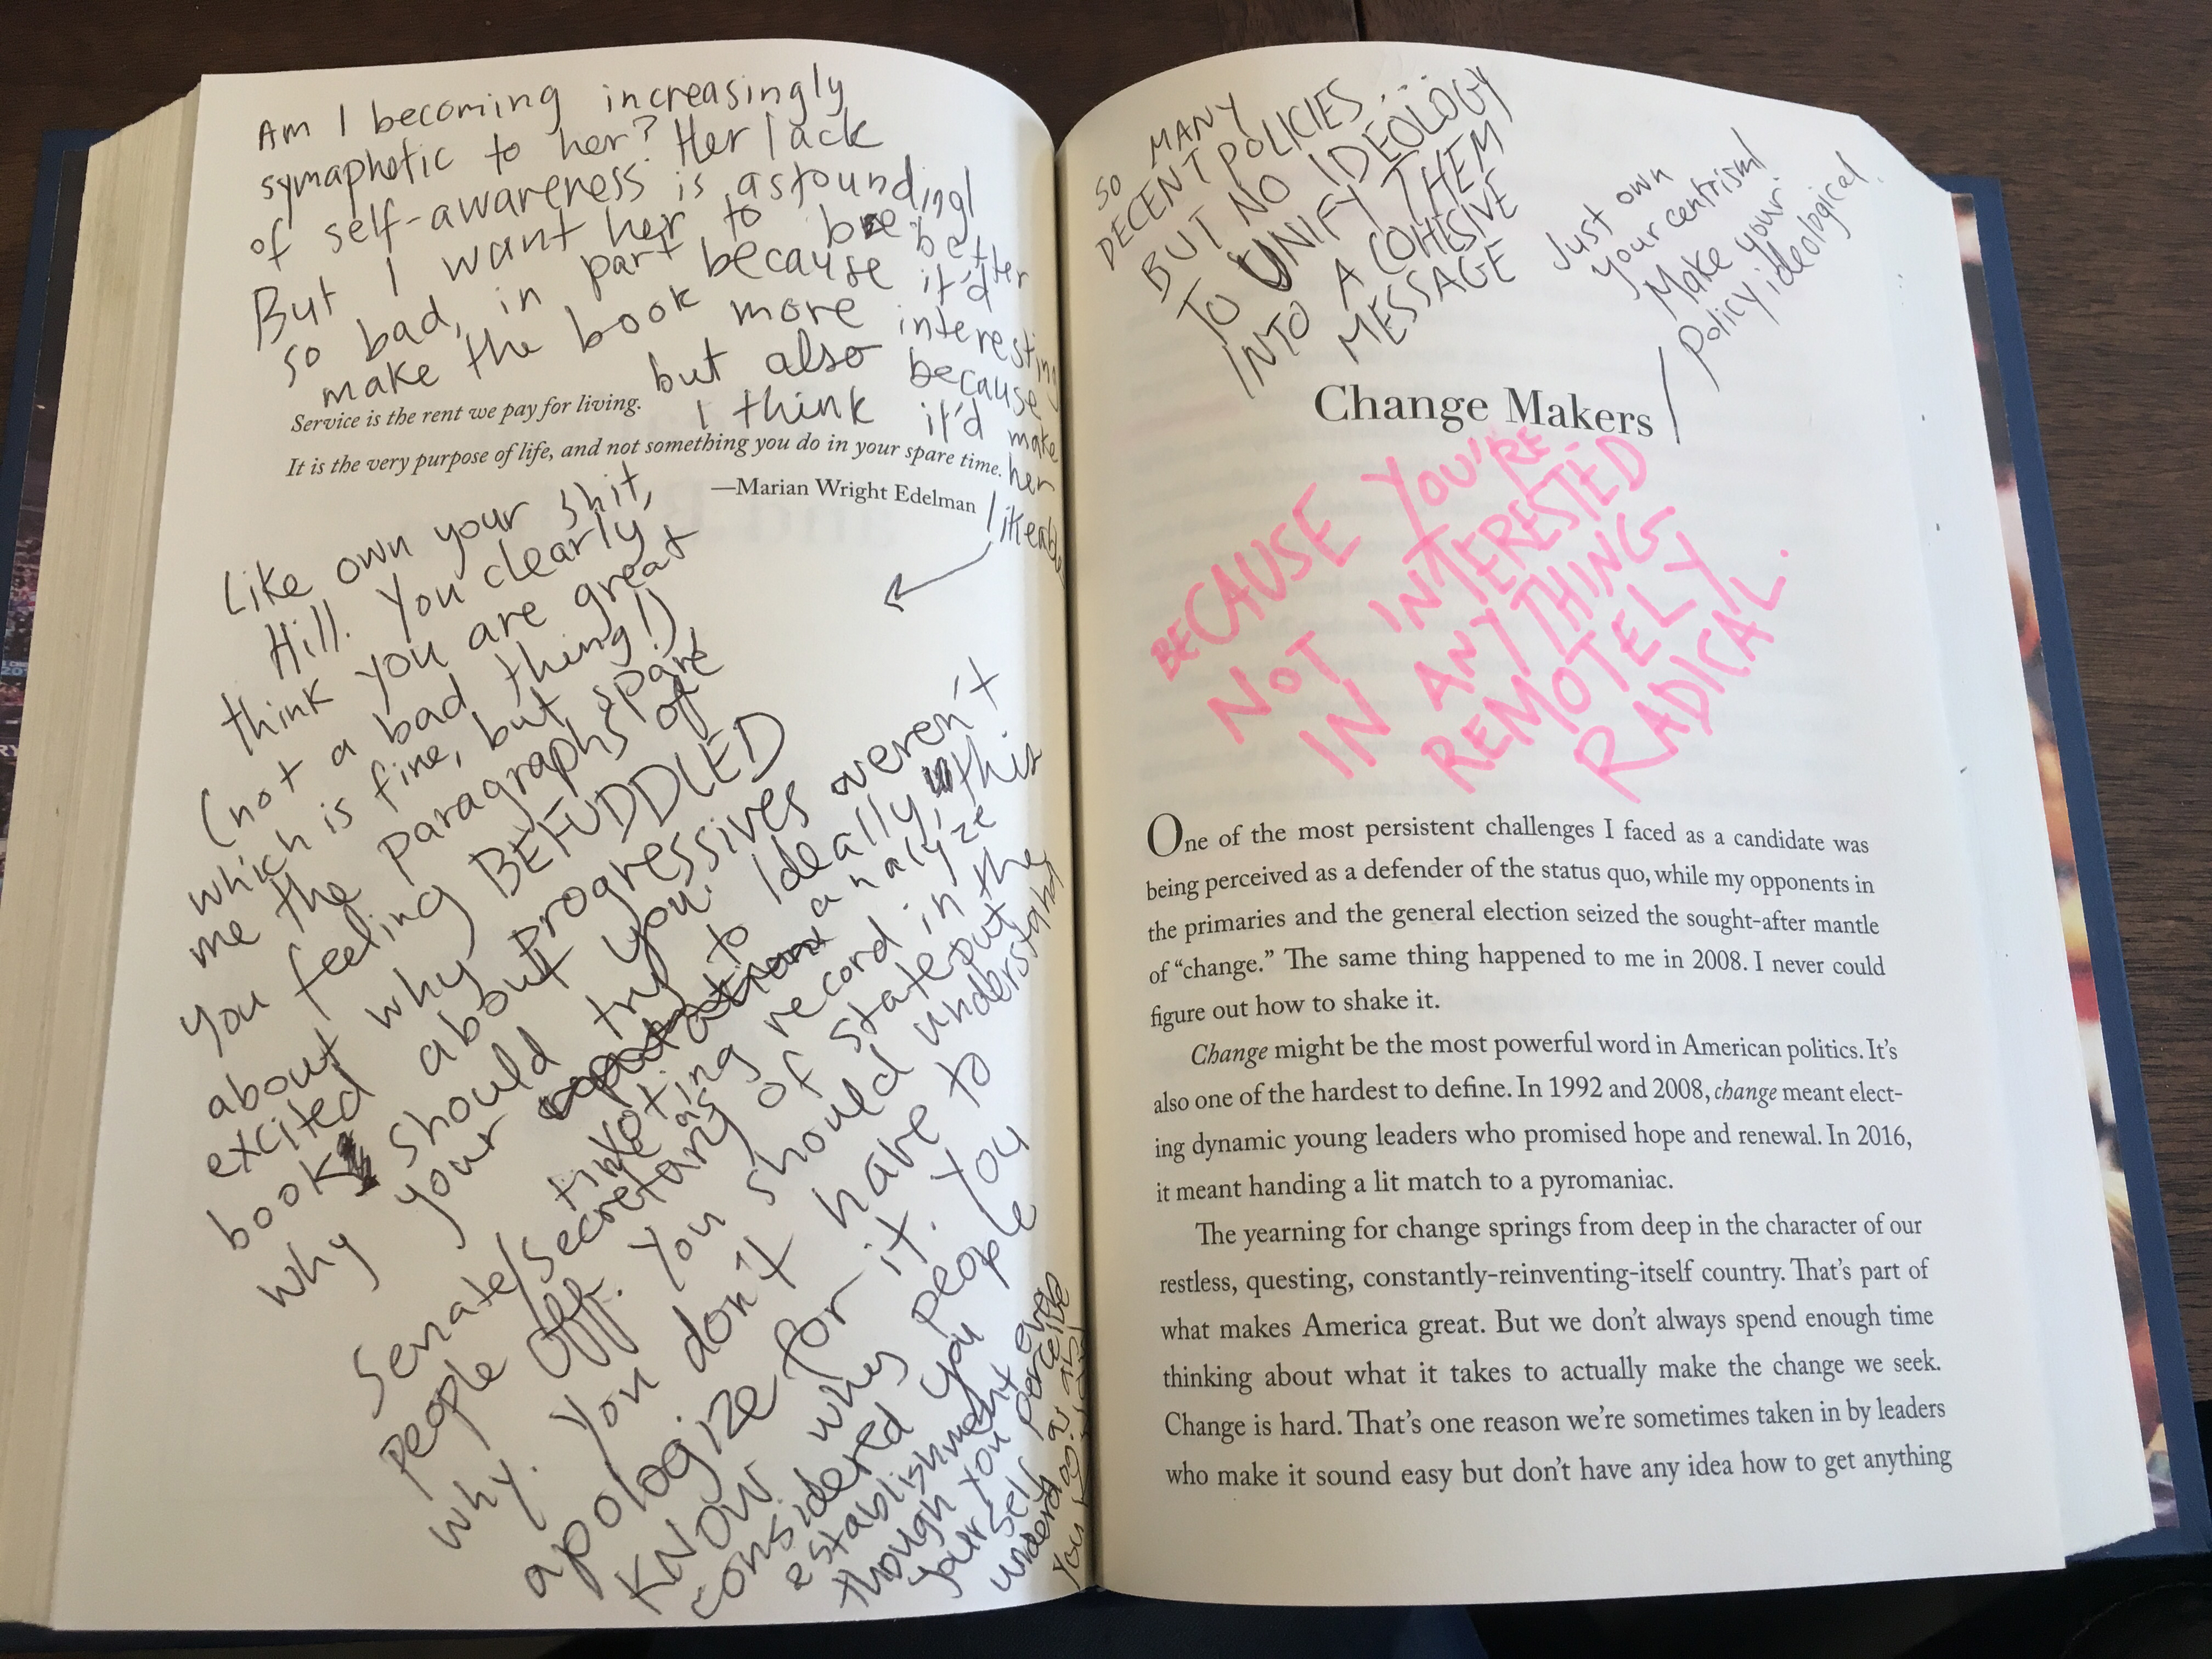 Am I becoming increasingly
symaphetic to her? Her lack
of self-awareness is astounding!
But I want her to be better
so bad, in part because it'd
make the book more interesting
but also because
I think it'd make
her
likeable
Service is the rent we pay for living.
It is the very purpose of life, and not something you do in your spare time.
—Marian Wright Edelman
Like own your shit,
Hill. You clearly
think you are great
(not a bad thing!)
which is fine, but spare
me the paragraphs of
you feeling BEFUDDLED
about why progressives weren't
excited about you. Ideally in this
book should try to analyze
why your voting record in the
Senate/Secretary of State put
people off. You should understand
why. You don't have to
apologize for it. You
KNOW why people
considered you
establishment even
though you
yourself
SO
MANY
DECENT POLICIES...
BUT NO IDEOLOGY
TO UNIFY THEM
INTO A COHESIVE
MESSAGE
Just own
your centrism!
Make your
policy ideological.
Change Makers
BECAUSE YOU'RE
NOT INTERESTED
IN ANYTHING
REMOTELY
RADICAL.
One of the most persistent challenges I faced as a candidate was
being perceived as a defender of the status quo, while my opponents in
the primaries and the general election seized the sought-after mantle
of “change.” The same thing happened to me in 2008. I never could
figure out how to shake it.
Change might be the most powerful word in American politics. It’s
also one of the hardest to define. In 1992 and 2008, change meant elect-
ing dynamic young leaders who promised hope and renewal. In 2016,
it meant handing a lit match to a pyromaniac.
The yearning for change springs from deep in the character of our
restless, questing, constantly-reinventing-itself country. That’s part of
what makes America great. But we don’t always spend enough time
thinking about what it takes to actually make the change we seek.
Change is hard. That’s one reason we’re sometimes taken in by leaders
who make it sound easy but don’t have any idea how to get anything